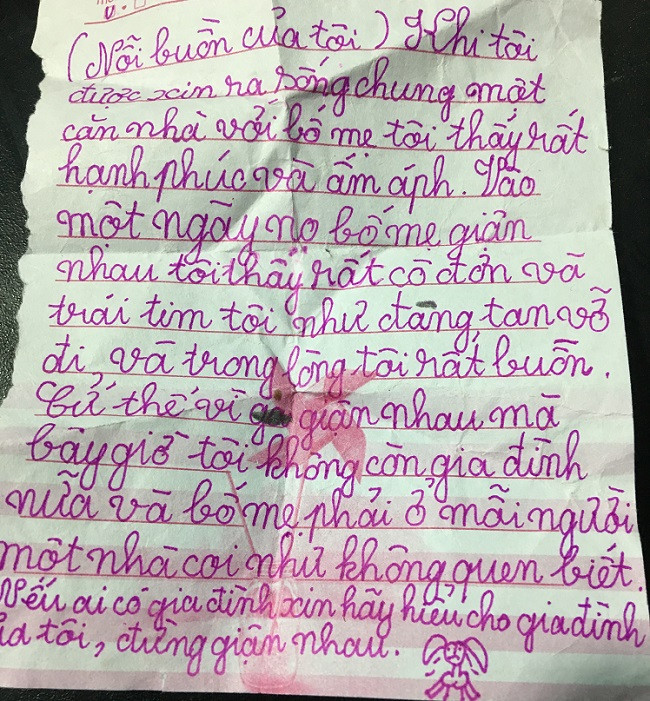 (Nỗi buồn của tôi) Khi tôi
được xin ra sống chung một
căn nhà với bố mẹ tôi thấy rất
hạnh phúc và ấm áph. Vào
một ngày nọ bố mẹ giận
nhau tôi thấy rất cô đơn và
trái tim tôi như đang tan vỡ
đi, và trong lòng tôi rất buồn.
Cứ thế vì giận nhau mà
bây giờ tôi không còn gia đình
nữa và bố mẹ phải ở mỗi người
một nhà coi như không quen biết.
Nếu ai có gia đình xin hãy hiểu cho gia đình
ủa tôi, đừng giận nhau.